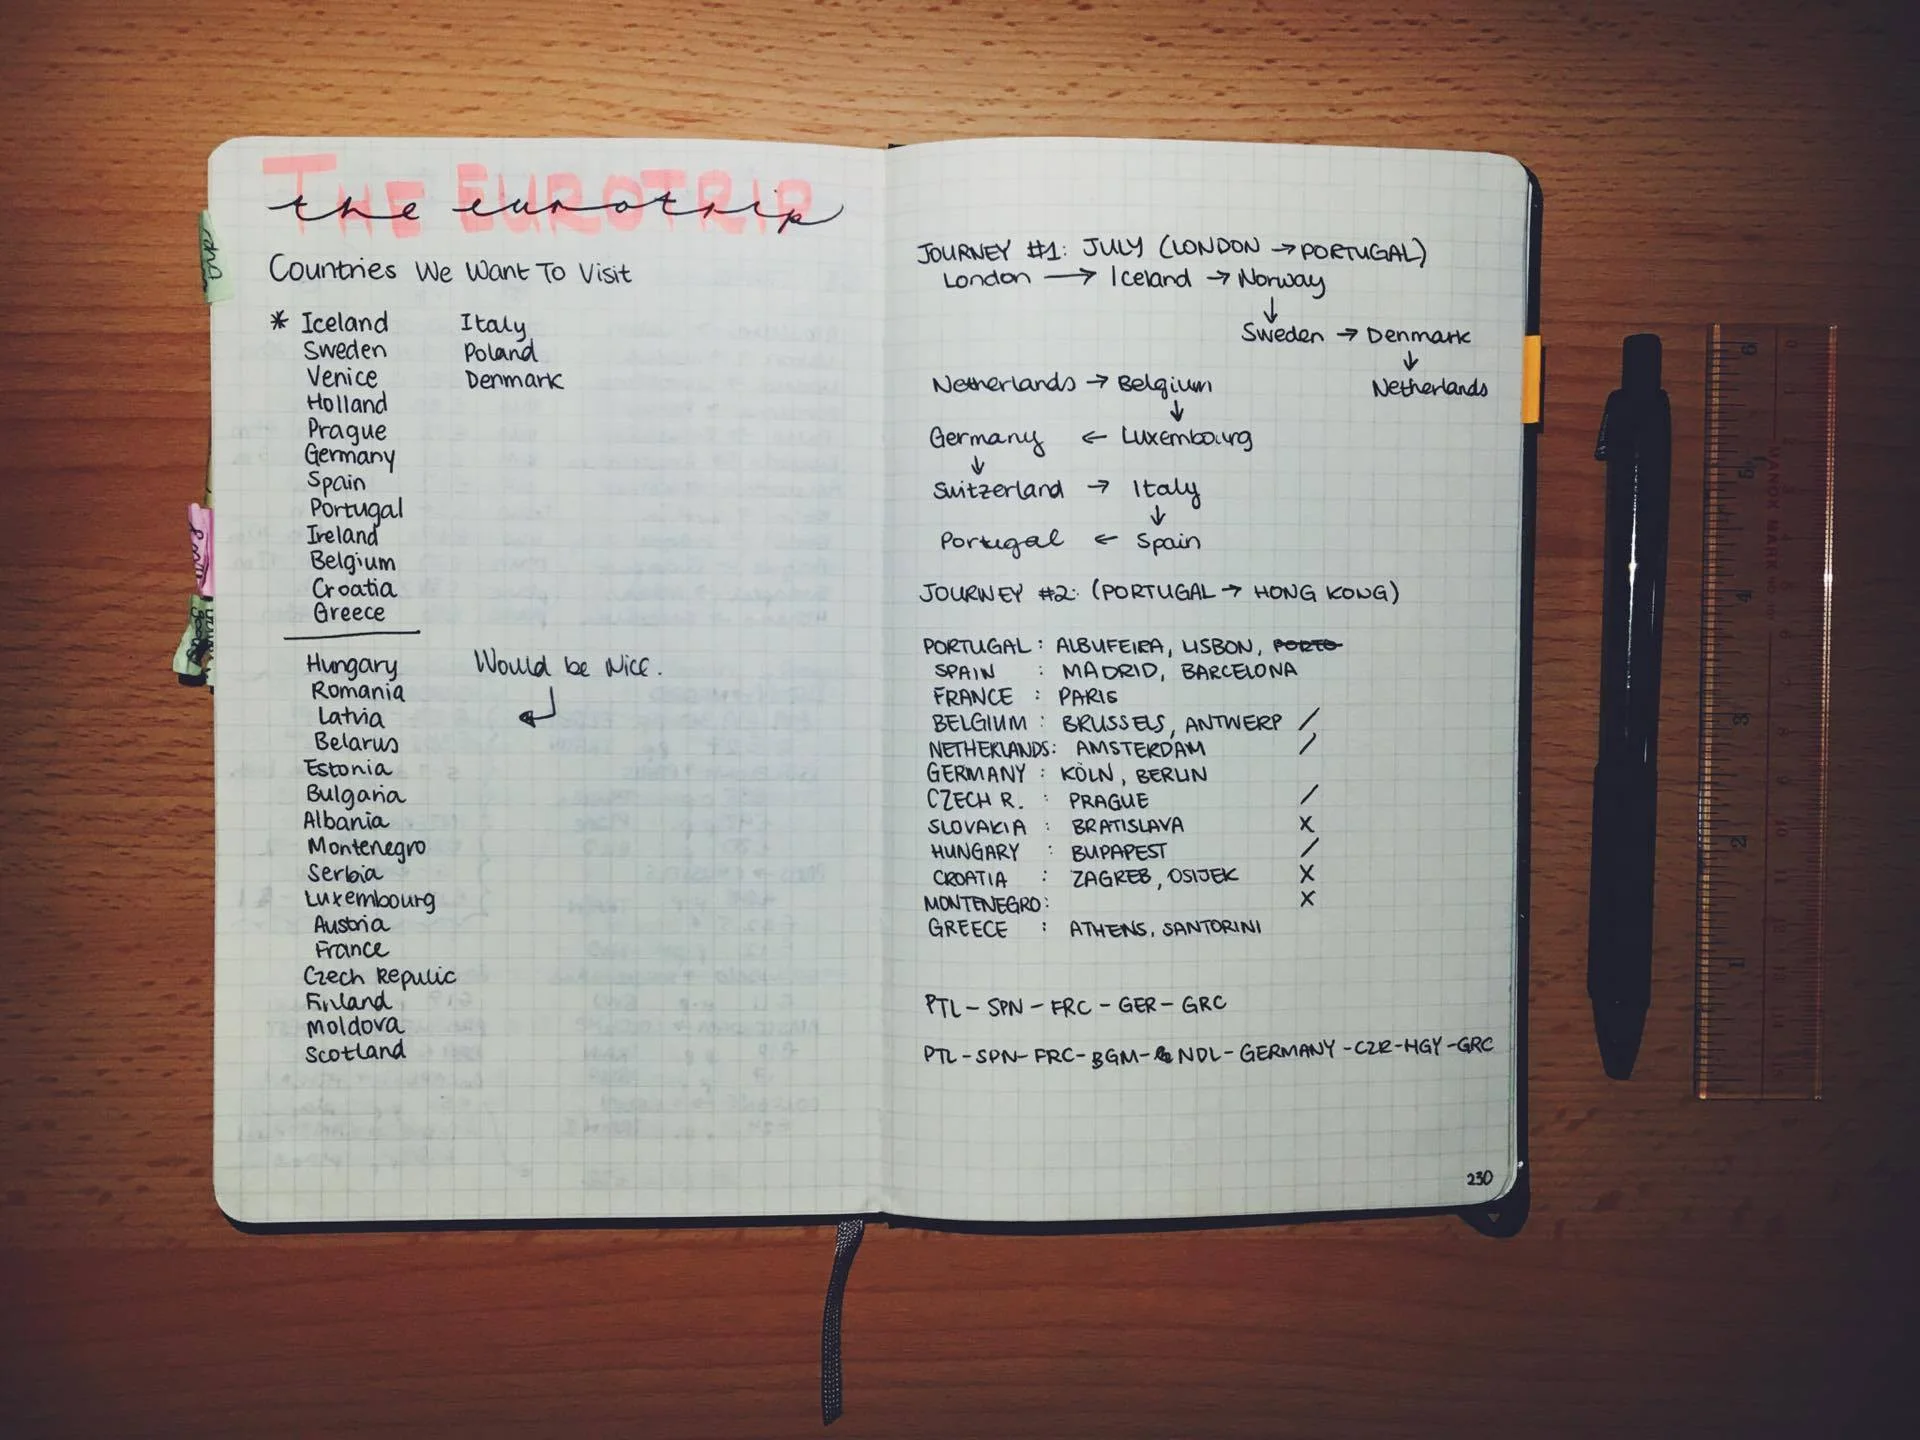 THE EUROTRIP
the eurotrip
Countries We Want To Visit
* Iceland
Sweden
Venice
Holland
Prague
Germany
Spain
Portugal
Ireland
Belgium
Croatia
Greece
Italy
Poland
Denmark
Hungary
Romania
Latvia
Belarus
Estonia
Bulgaria
Albania
Montenegro
Serbia
Luxembourg
Austria
France
Czech Repulic
Finland
Moldova
Scotland
Would be Nice.
JOURNEY #1: JULY (LONDON → PORTUGAL)
London → Iceland → Norway
↓
Sweden → Denmark
↓
Netherlands
Netherlands → Belgium
↓
Germany ← Luxembourg
↓
Switzerland → Italy
↓
Portugal ← Spain
JOURNEY #2: (PORTUGAL → HONG KONG)
PORTUGAL: ALBUFEIRA, LISBON, PORTO
SPAIN : MADRID, BARCELONA
FRANCE : PARIS
BELGIUM : BRUSSELS, ANTWERP /
NETHERLANDS: AMSTERDAM /
GERMANY : KÖLN, BERLIN
CZECH R. : PRAGUE /
SLOVAKIA : BRATISLAVA X
HUNGARY : BUPAPEST /
CROATIA : ZAGREB, OSIJEK X
MONTENEGRO: X
GREECE : ATHENS, SANTORINI
PTL - SPN - FRC - GER - GRC
PTL - SPN - FRC - BGM - NDL - GERMANY - CZR - HGY - GRC
230
6
5
4
3
2
1